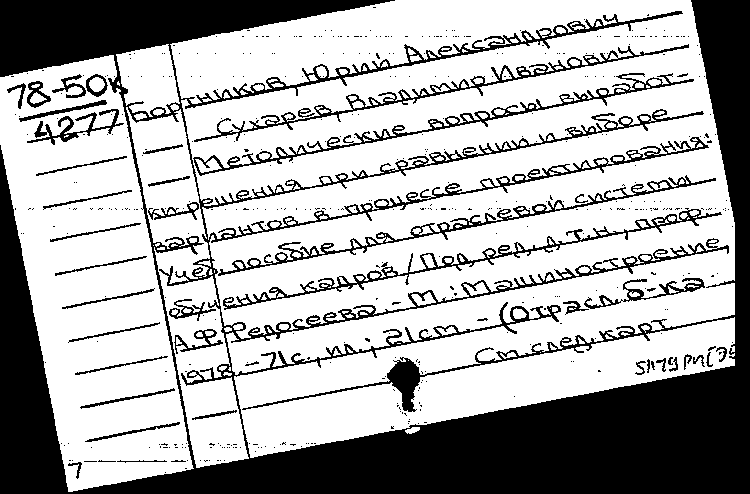 78-50к
4277
Бортников, Юрий Александрович,
Сухарев, Владимир Иванович.
Методические вопросы выработ-
ки решения при сравнении и выборе
вариантов в процессе проектирования:
Учеб. пособие для отраслевой системы
обучения кадров / Под ред. д.т.н., проф.
А.Ф. Федосеева. - М.: Машиностроение,
1978. - 71с., ил.; 21см. - (Отрасл. б-ка
См. след. карт.
7